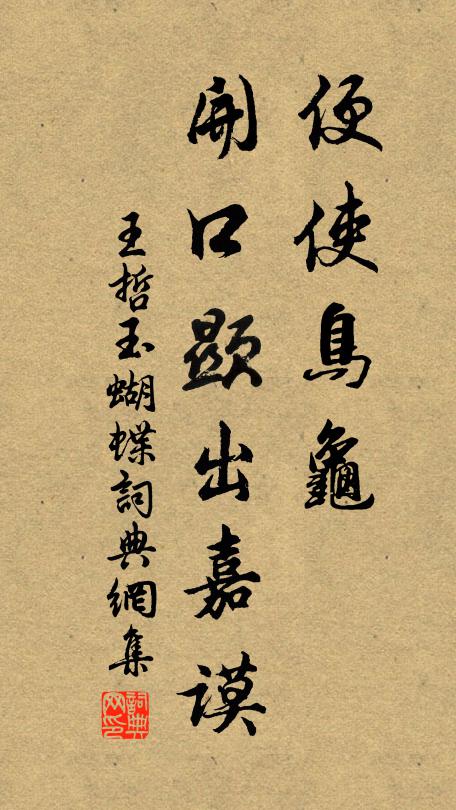 便使烏龜
開口顯出嘉謨
王哲玉蝴蝶詞典網集
詞典
网印